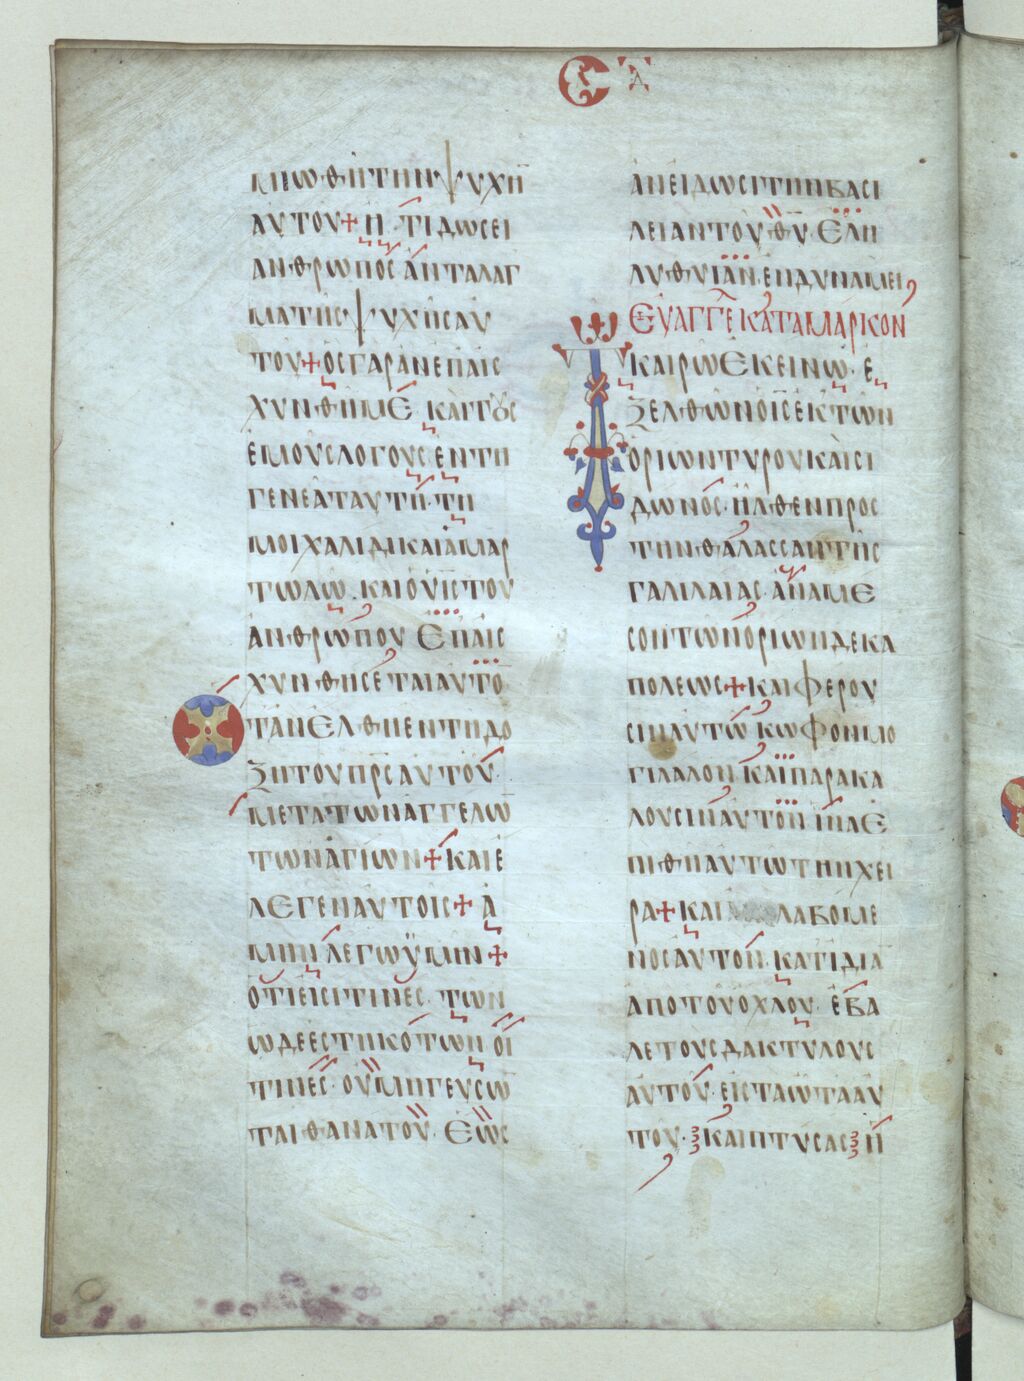 Ε ΤΑ
ΜΙΩΘΗΤΗΝΨΥΧΗ̅
ΑΥΤΟΥ+Η ΤΙΔΩΣΕΙ
ΑΝΘΡΩΠΟΣ ΑΝΤΑΛΑΓ
ΜΑΤΗΣΨΥΧΗΣΑΥ
ΤΟΥ+ΟΣΓΑΡΑΝΕΠΑΙΣ
ΧΥΝΘΗΜΕ· ΚΑΙΤΟΥΣ
ΕΜΟΥΣΛΟΓΟΥΣ ΕΝΤΗ
ΓΕΝΕΑΤΑΥΤΗ·ΤΗ
ΜΟΙΧΑΛΙΔΙΚΑΙΑΜΑΡ
ΤΩΛΩ· ΚΑΙΟΥΙΣΤΟΥ
ΑΝΘΡΩΠΟΥ ΕΠΑΙΣ
ΧΥΝΘΗΣΕΤΑΙΑΥΤΟ̅
ΤΑΝΕΛΘΗΕΝΤΗΔΟ
ΞΗΤΟΥΠΡ̅ΣΑΥΤΟΥ·
ΜΕΤΑΤΩΝΑΓΓΕΛΩ̅
ΤΩΝΑΓΙΩΝ+ΚΑΙΕ
ΛΕΓΕΝΑΥΤΟΙΣ+Α
ΜΗΝ ΛΕΓΩΫΜΙΝ+
ΟΤΙΕΙΣΙΤΙΝΕΣ ΤΩΝ
ΩΔΕΕΣΤΗΚΟΤΩΝ ΟΙ
ΤΙΝΕΣ· ΟΥΜΗΓΕΥΣΩ
ΤΑΙΘΑΝΑΤΟΥ· ΕΩΣ
ΑΝΕΙΔΩΣΙΤΗΝΒΑΣΙ
ΛΕΙΑΝΤΟΥΘ̅Υ̅ ΕΛΗ
ΛΥΘΥΙΑΝ·ΕΝΔΥΝΑΜΕΙ
ΕΥΑΓΓΕ ΚΑΤΑΜΑΡΚΟΝ
ΤΚΑΙΡΩΕΚΕΙΝΩ· Ε
ΞΕΛΘΩΝΟΙ̅Σ̅ΕΚΤΩΝ
ΟΡΙΩΝΤΥΡΟΥΚΑΙΣΙ
ΔΩΝΟΣ· ΗΛΘΕΝΠΡΟΣ
ΤΗΝΘΑΛΑΣΣΑΝΤΗΣ
ΓΑΛΙΛΑΙΑΣ· ΑΝΑΜΕ
ΣΟΝΤΩΝΟΡΙΩΝΔΕΚΑ
ΠΟΛΕΩΣ+ΚΑΙΦΕΡΟΥ
ΣΙΝΑΥΤΩ ΚΩΦΟΝΜΟ
ΓΙΛΑΛΟΝ ΚΑΙΠΑΡΑΚΑ
ΛΟΥΣΙΝΑΥΤΟΝ ΙΝΑΕ
ΠΙΘΗΑΥΤΩΤΗΝΧΕΙ
ΡΑ+ΚΑΙ ΛΑΒΟΜΕ
ΝΟΣΑΥΤΟΝ· ΚΑΤΙΔΙΑ
ΑΠΟΤΟΥΟΧΛΟΥ· ΕΒΑ
ΛΕΤΟΥΣΔΑΚΤΥΛΟΥΣ
ΑΥΤΟΥ·ΕΙΣΤΑΩΤΑΑΥ
ΤΟΥ· ΚΑΙΠΤΥΣΑΣ Η